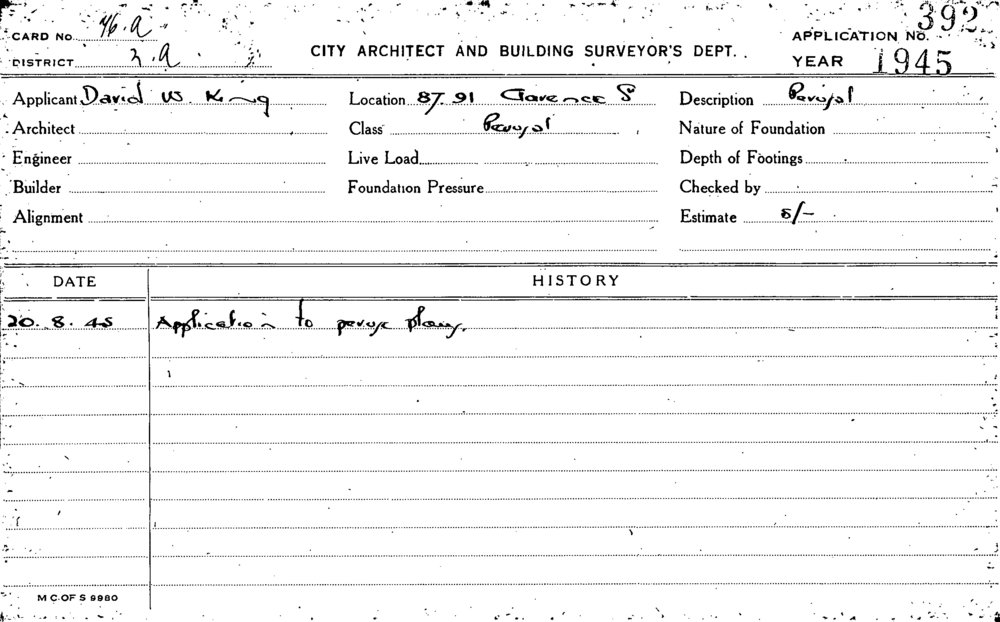 CARD No. 46.A
DISTRICT 2.A
CITY ARCHITECT AND BUILDING SURVEYOR'S DEPT.
APPLICATION No. 392
YEAR 1945
Applicant David W. King
Location 87.91 Clarence S
Description Perusal
Architect
Class Perusal
Nature of Foundation
Engineer
Live Load
Depth of Footings
Builder
Foundation Pressure
Checked by
Alignment
Estimate 5/-
DATE HISTORY
20. 8. 45 Application to peruse plans.
M C OF S 9980